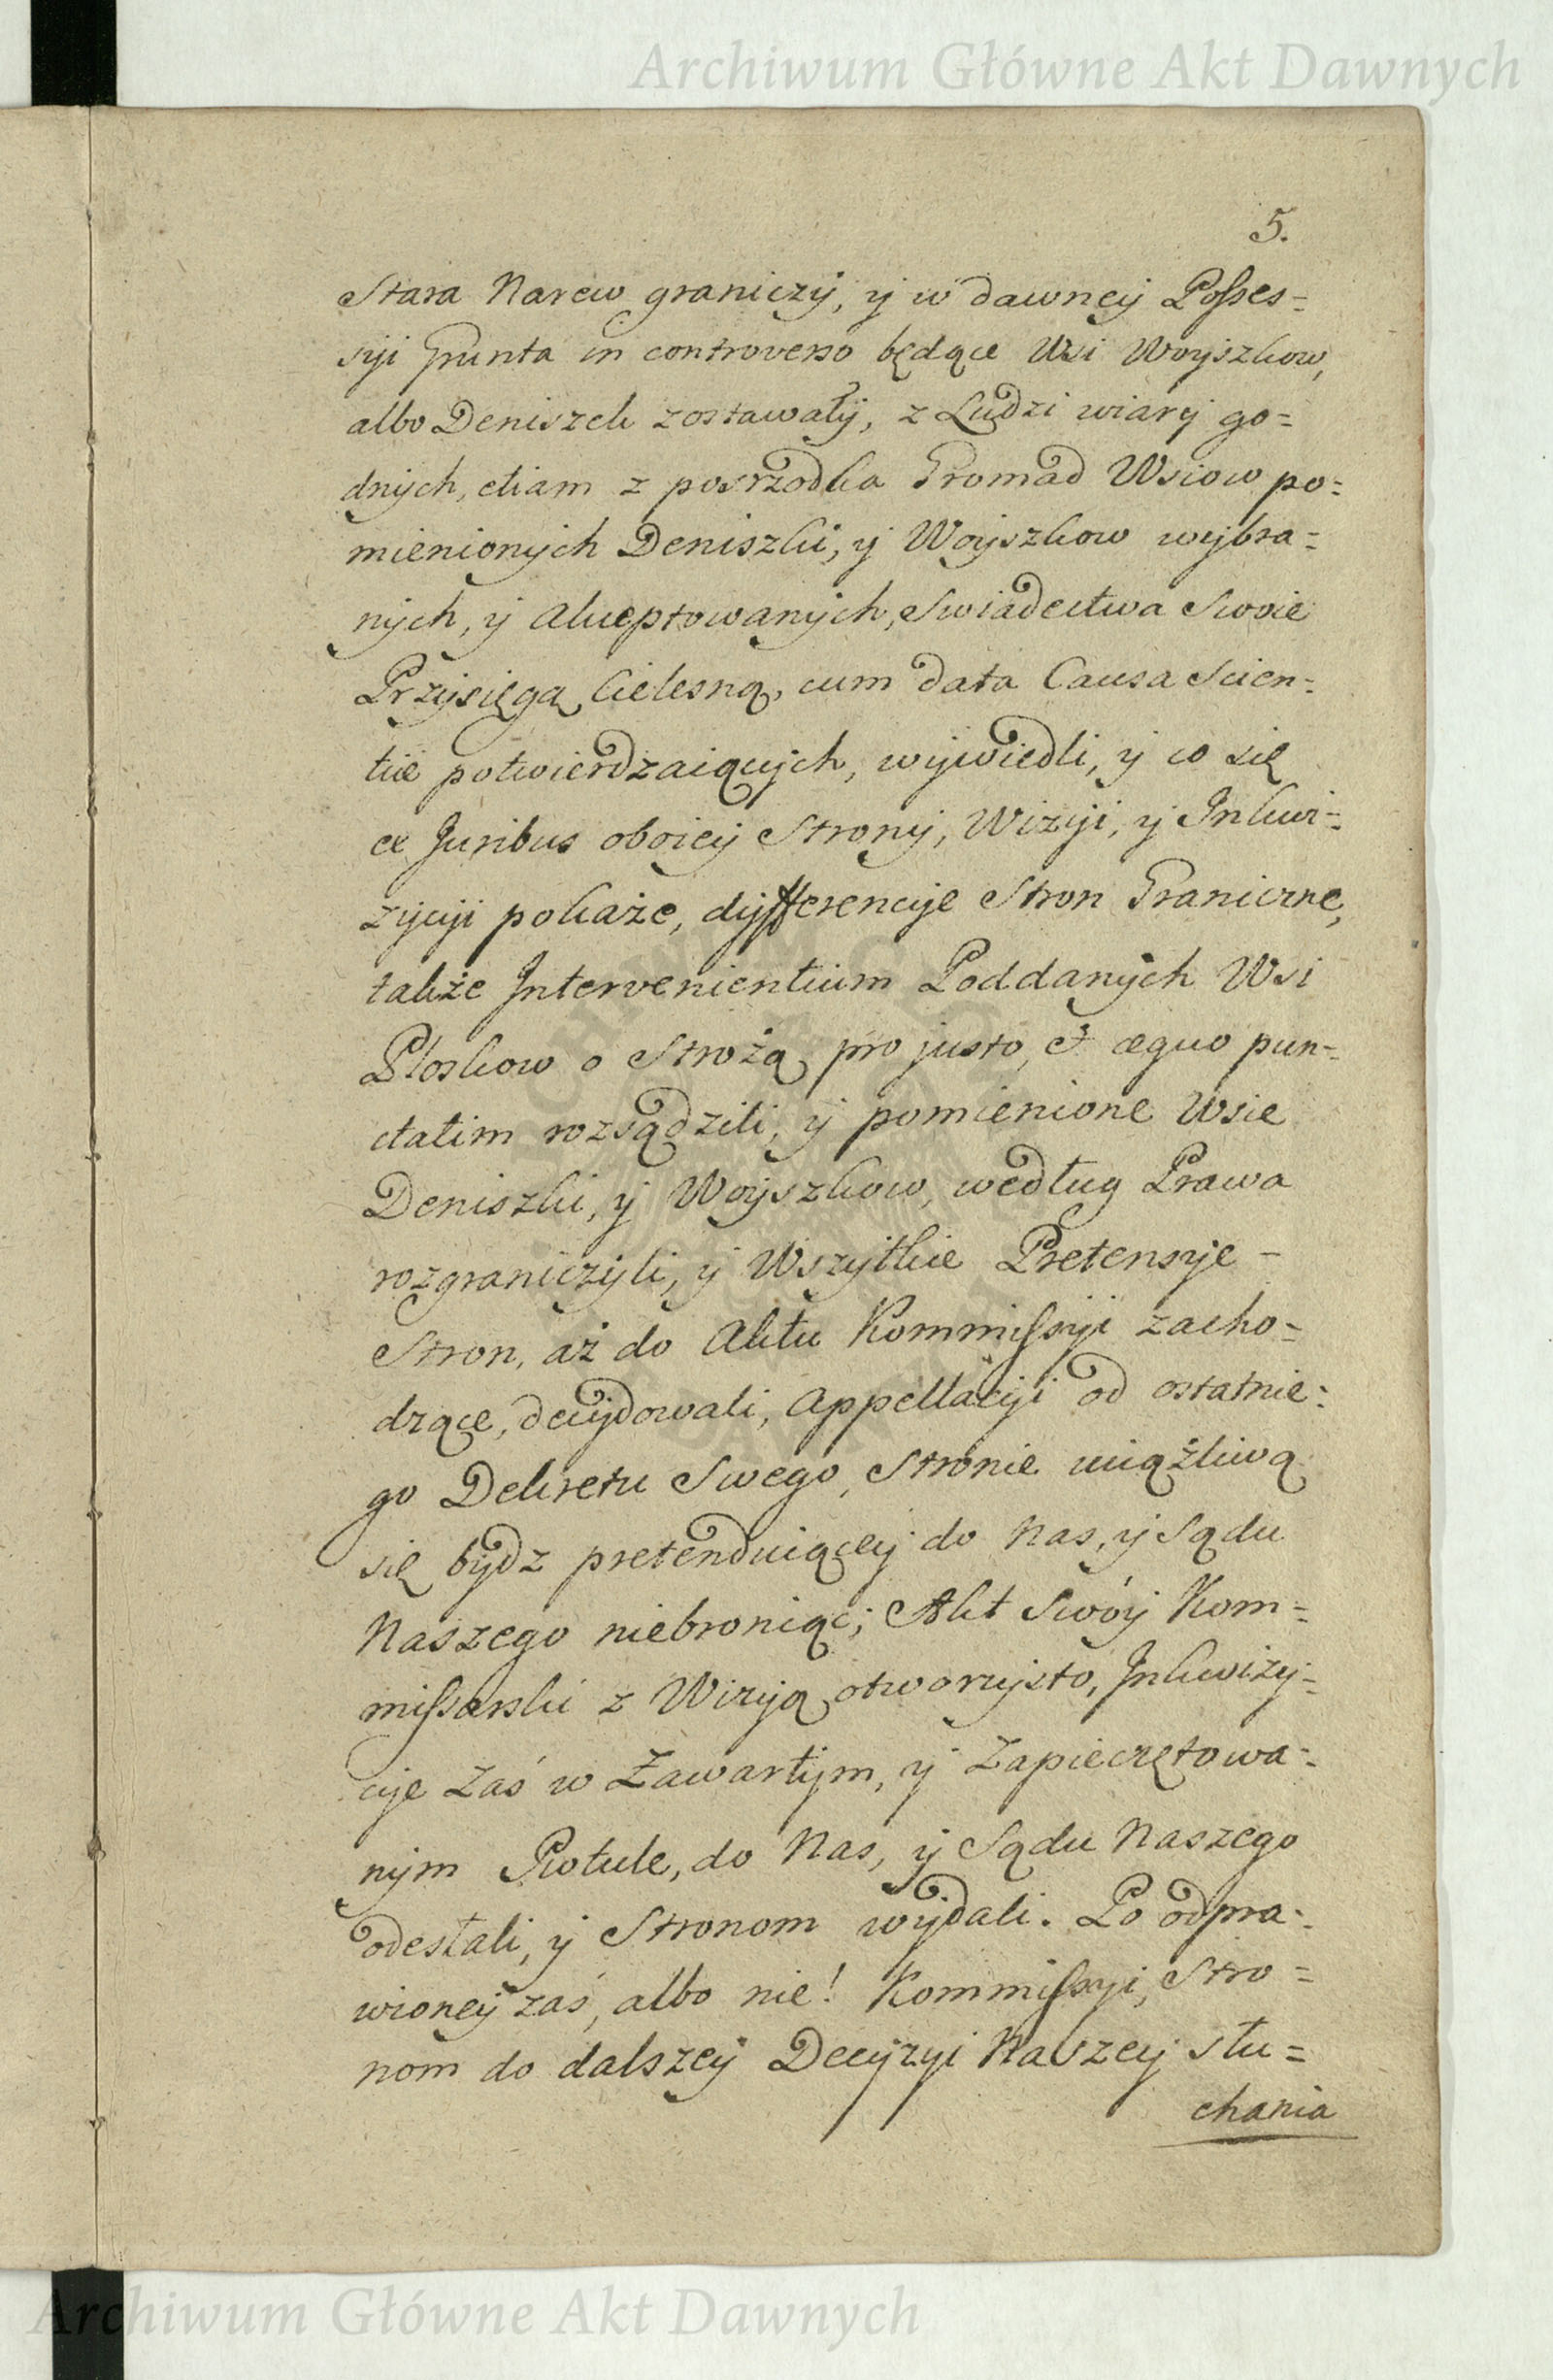 Archiwum Główne Akt Dawnych
5.
Stara Narew graniczy, y w dawney Posses=
syi Grunta in controverso będące Wsi Woyszkow,
albo Deniszek zostawały, z Ludzi wiary go=
dnych, etiam z posrzodka Gromad Wsiow po=
mienionych Deniszki, y Woyszkow wybra=
nych, y akceptowanych, Swiadectwa Swoie
Przysięgą Cielesną, cum data Causa Scien=
tiæ potwierdzaiących, wywiedli, y co się
ex Juribus oboiey Strony, Wizyi, y Inkwi=
zycyi pokaże, dyfferencye Stron Graniczne,
także Intervenientium Poddanych Wsi
Ploskow o Strożą pro justo, et æquo pun=
ctatim rozsądzili, y pomienione Wsie
Deniszki, y Woyszkow, według Prawa
rozgraniczyli, y Wszytkie Pretensye -
Stron, aż do Aktu Kommissyi zacho=
dzące, decydowali, Appellacyi od ostatnie=
go Dekretu Swego, Stronie uciążliwą
się bydz pretenduiącey do Nas, y Sądu
Naszego niebroniąc; Akt Swóy Kom=
missarski z Wizyą otworzysto, Inkwizy=
cye zaś w Zawartym, y Zapieczętowa=
nym Rotule, do Nas, y Sądu Naszego
odesłali, y Stronom wydali. Po odpra=
wioney zaś, albo nie! Kommissyi, Stro=
nom do dalszey Decyzyi Naszey słu=
chania
Archiwum Główne Akt Dawnych